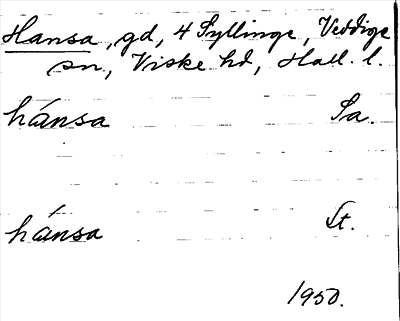 Hansa, gd, 4 Syllinge, Veddige
sn, Viske hd, Hall. l.
hánsa Sa.
hánsa St.
1950.